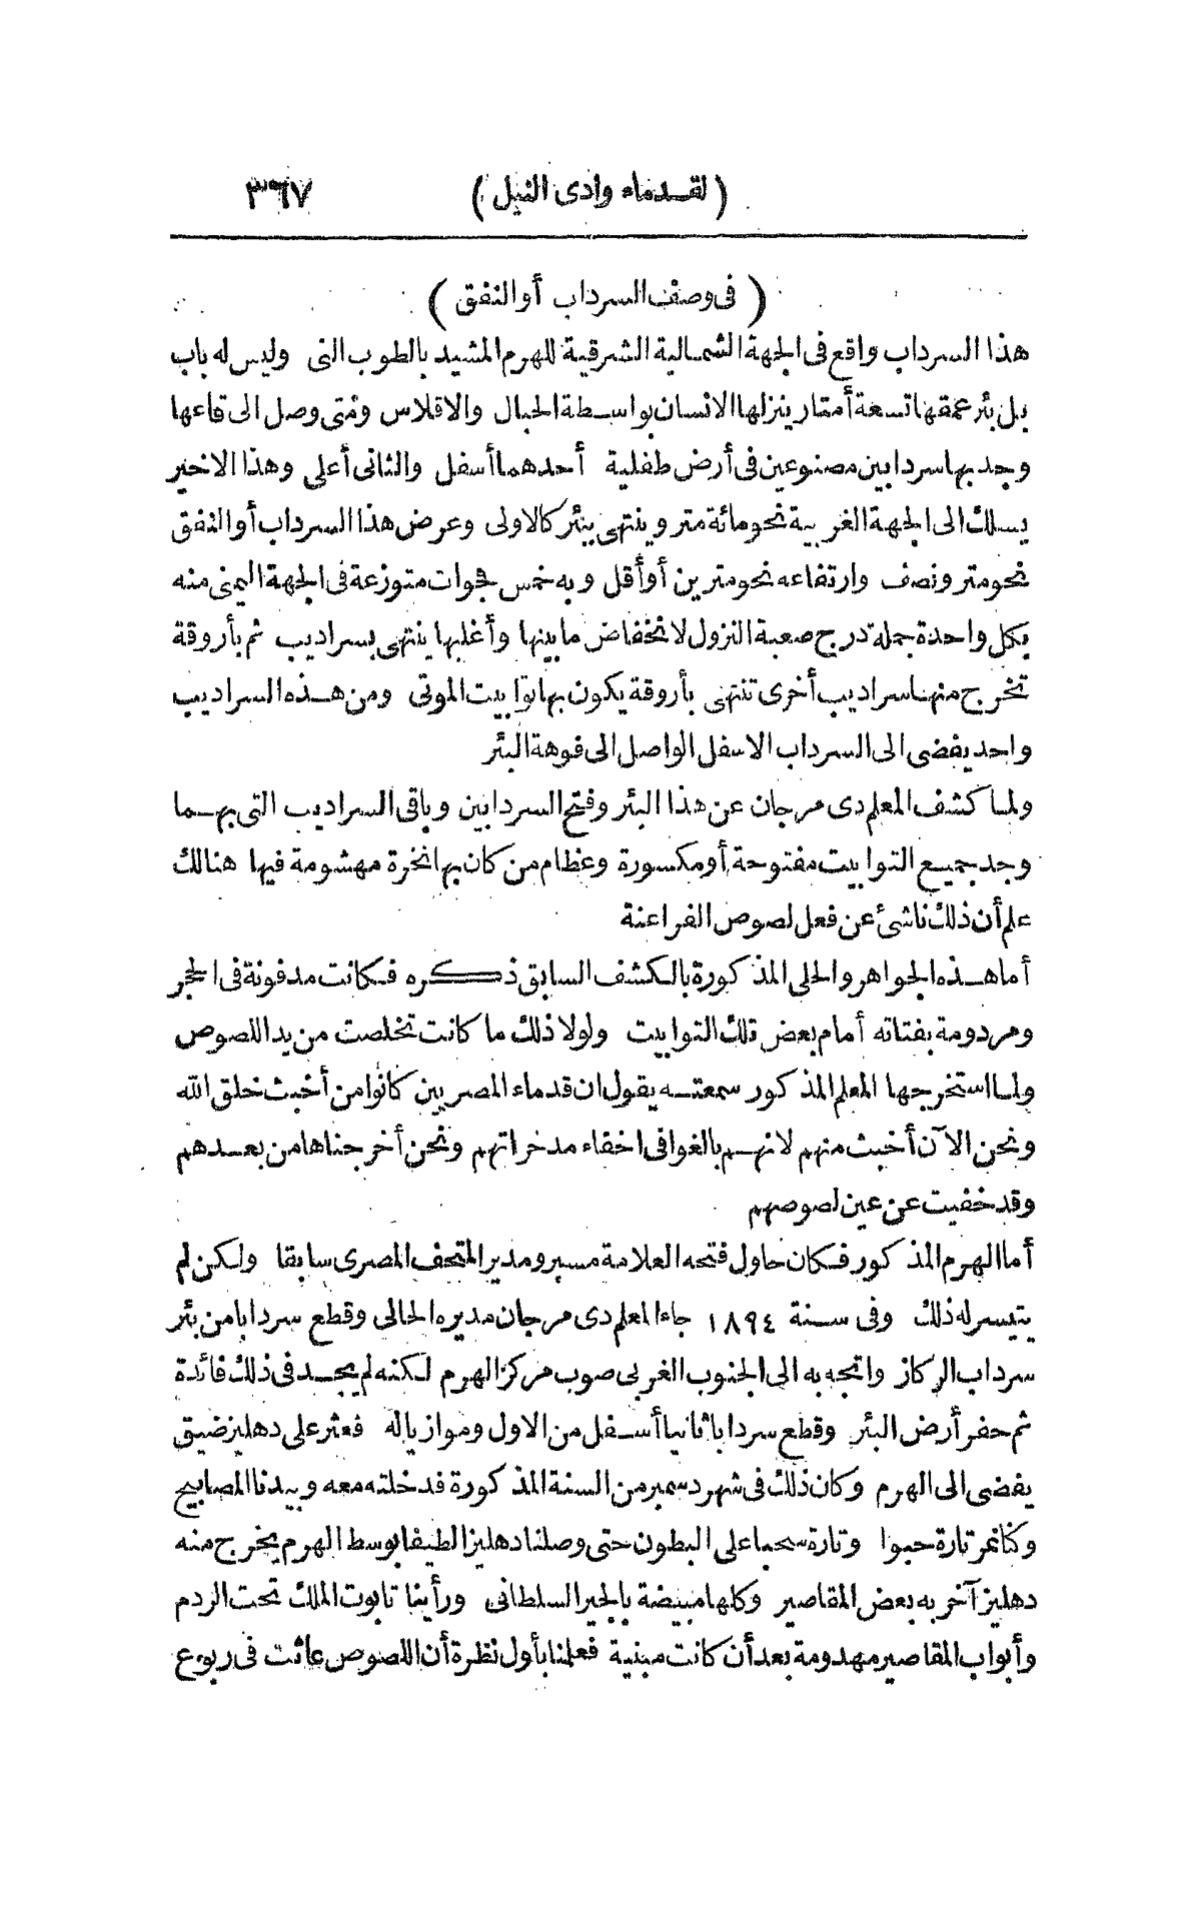 (لقدماء وادى النيل) ٣٦٧
(فى وصف السرداب أو النفق)
هذا السرداب واقع فى الجهة الشمالية الشرقية للهرم المشيد بالطوب النى وليس له باب
بل بئر عمقها تسعة أمتار ينزلها الانسان بواسطة الحبال والاقلاس ومتى وصل الى قاعها
وجد بها سردابين مصنوعين فى أرض طفلية أحدهما أسفل والثانى أعلى وهذا الاخير
يسلك الى الجهة الغربية نحو مائة متر وينتهى ببئر كالاولى وعرض هذا السرداب أو النفق
نحو متر ونصف وارتفاعه نحو مترين أو أقل وبه خمس فجوات متوزعة فى الجهة اليمنى منه
بكل واحدة جملة درج صعبة النزول لانخفاض ما بينها وأغلبها ينتهى بسراديب ثم بأروقة
تخرج منها سراديب أخرى تنتهى بأروقة يكون بها توابيت الموتى ومن هذه السراديب
واحد يفضى الى السرداب الاسفل الواصل الى فوهة البئر
ولما كشف المعلم دى مرجان عن هذا البئر وفتح السردابين وباقى السراديب التى بهما
وجد جميع التوابيت مفتوحة أو مكسورة وعظام من كان بها نخرة مهشومة فيها هنالك
علم أن ذلك ناشئ عن فعل لصوص الفراعنة
أما هذه الجواهر والحلى المذكورة بالكشف السابق ذكره فكانت مدفونة فى الحجر
ومردومة بفتاته أمام بعض تلك التوابيت ولولا ذلك ما كانت تخلصت من يد اللصوص
ولما استخرجها المعلم المذكور سمعته يقول ان قدماء المصريين كانوا من أخبث خلق الله
ونحن الآن أخبث منهم لانهم بالغوا فى اخفاء مدخراتهم ونحن أخرجناها من بعدهم
وقد خفيت عن عين لصوصهم
أما الهرم المذكور فكان حاول فتحه العلامة مسبرو مدير المتحف المصرى سابقا ولكن لم
يتيسر له ذلك وفى سنة ١٨٩٤ جاء المعلم دى مرجان مديره الحالى وقطع سردابا من بئر
سرداب الركاز واتجه به الى الجنوب الغربى صوب مركز الهرم لكنه لم يجد فى ذلك فائدة
ثم حفر أرض البئر وقطع سردابا ثانيا أسفل من الاول وموازيا له فعثر على دهليز ضيق
يفضى الى الهرم وكان ذلك فى شهر دسمبر من السنة المذكورة فدخلته معه وبيدنا المصابيح
وكنا نمر تارة حبوا وتارة سحبا على البطون حتى وصلنا دهليزا لطيفا بوسط الهرم يخرج منه
دهليز آخر به بعض المقاصير وكلها مبيضة بالجير السلطانى ورأينا تابوت الملك تحت الردم
وأبواب المقاصير مهدومة بعد أن كانت مبنية فعلمنا بأول نظرة أن اللصوص عاثت فى ربوع